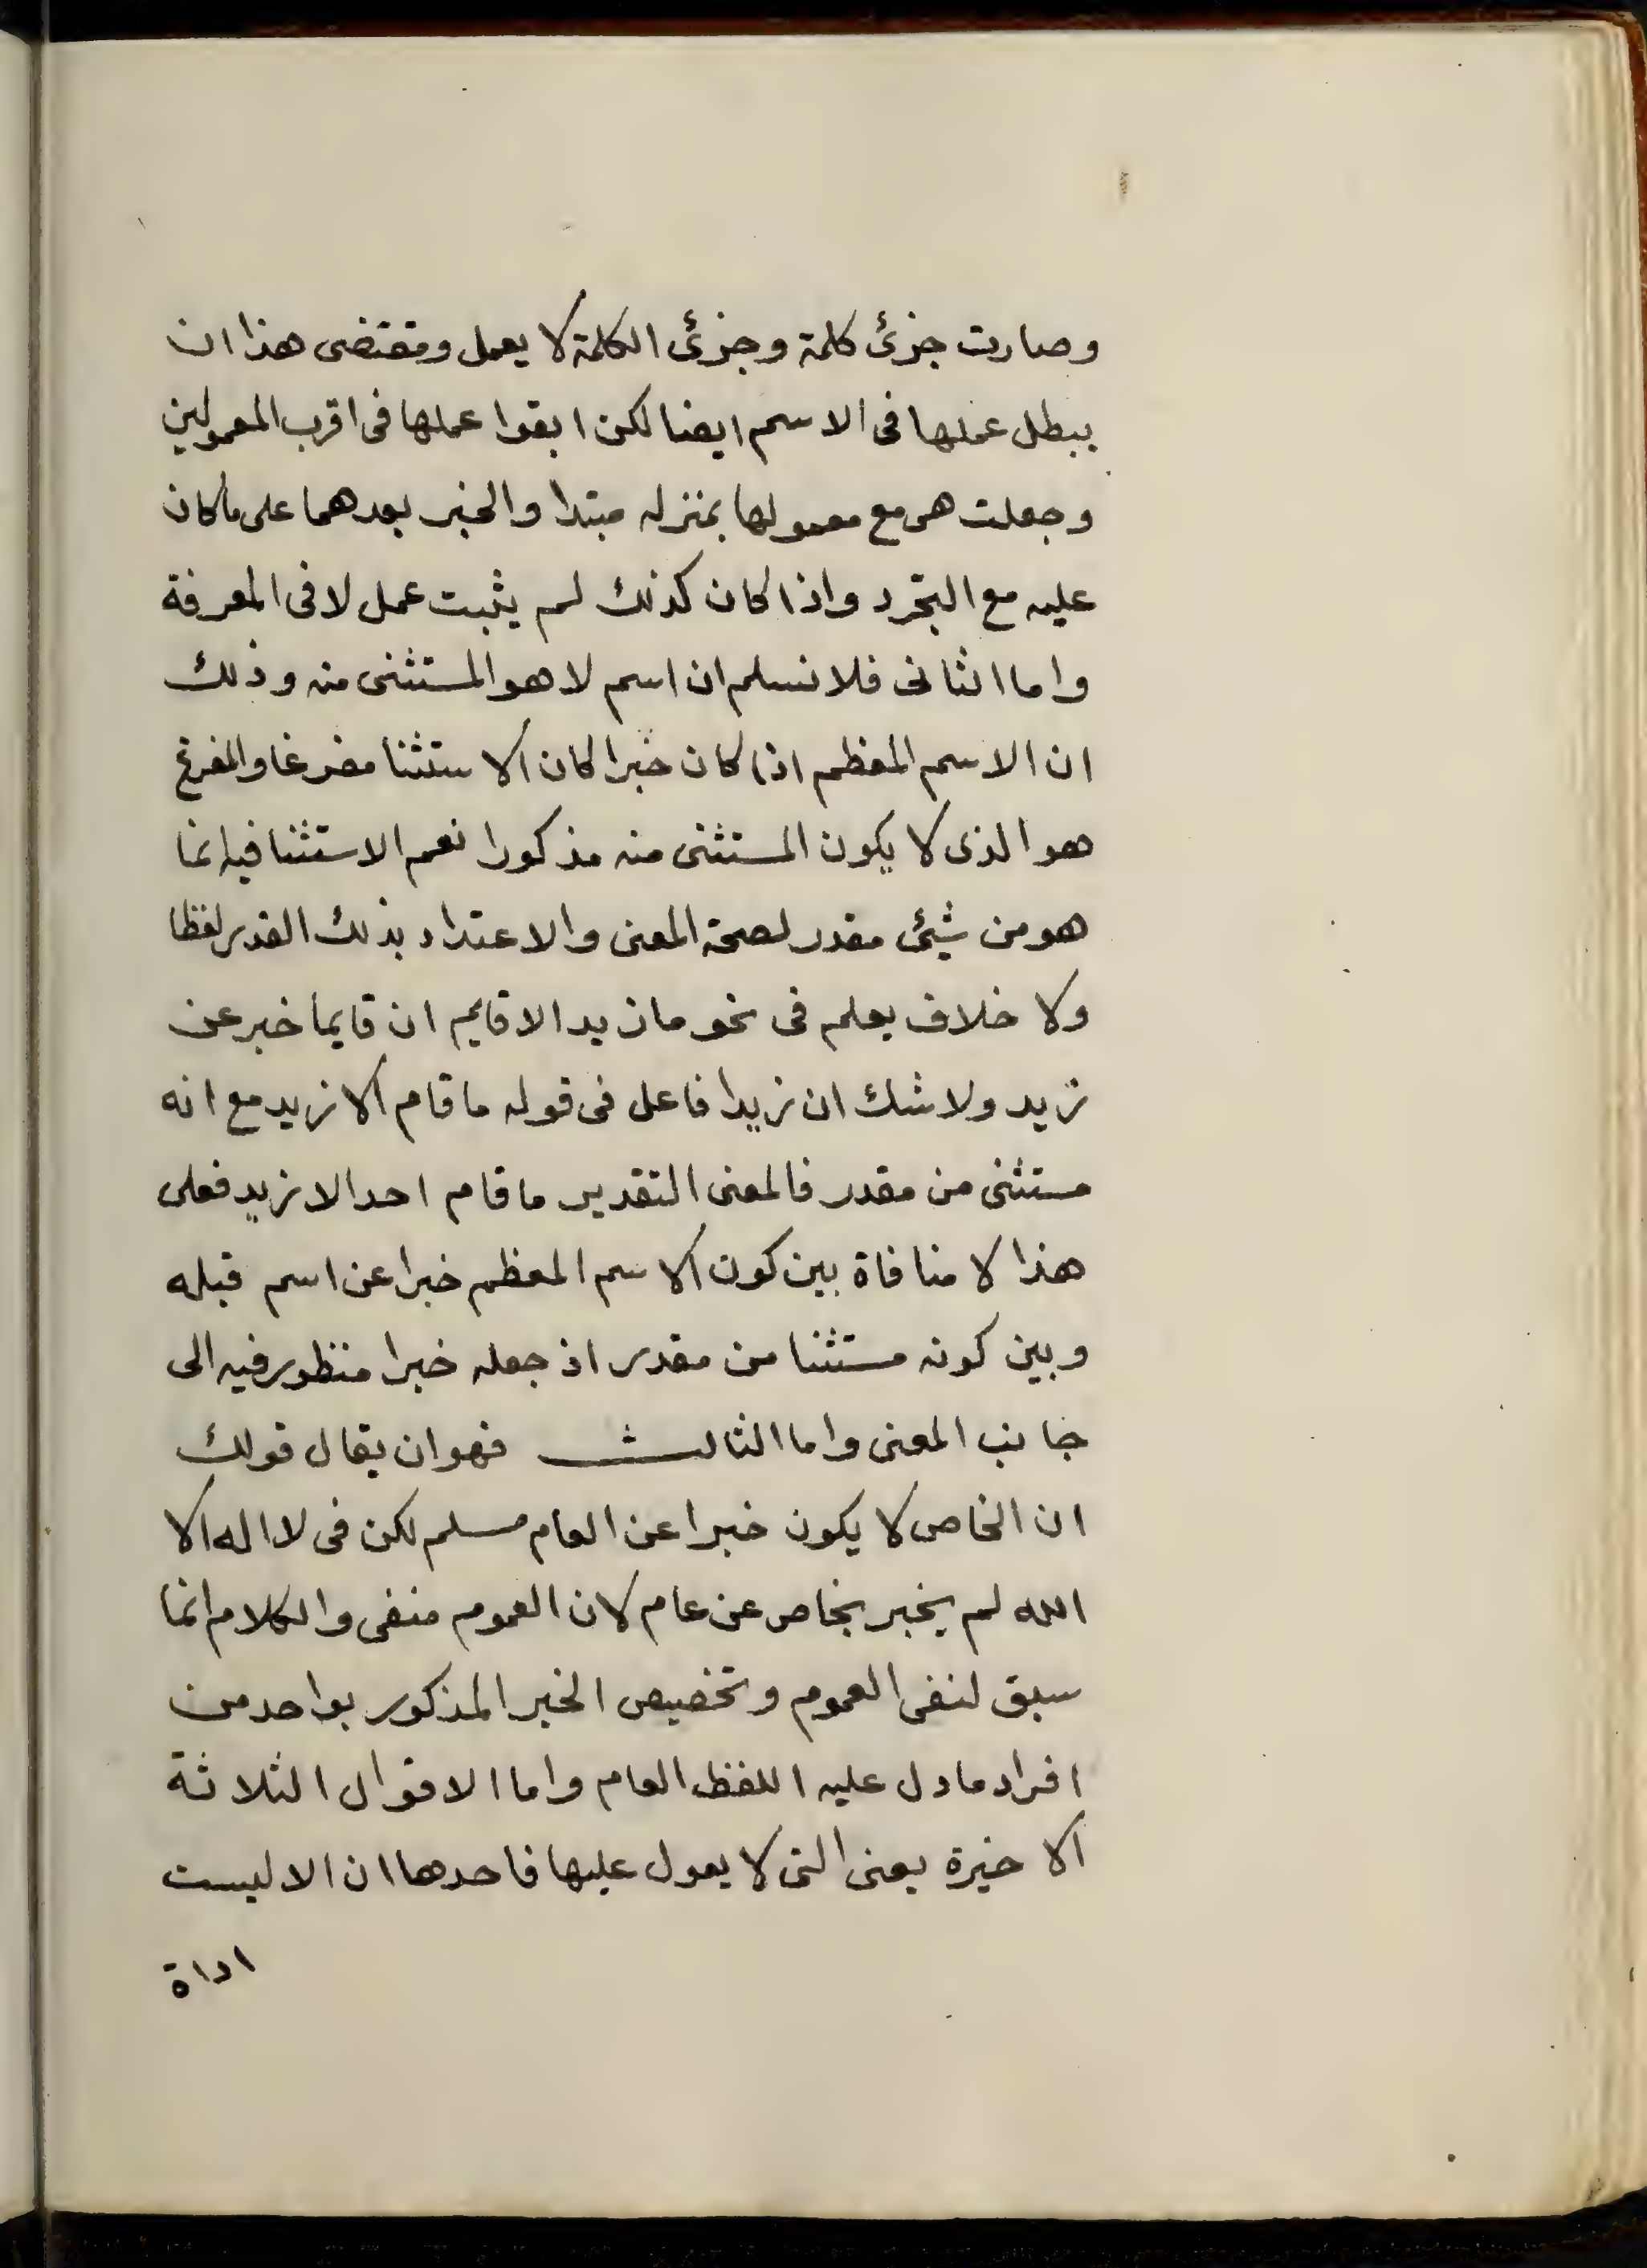 وصارت جزئ كلمة وجزئ الكلمة لا يعمل ومقتضى هذا ان
يبطل عملها فى الاسم ايضا لكن ابقوا عملها فى اقرب المعمولين
وجعلت هى مع معمولها بمنزله مبتدا والخبر بعدهما على ما كان
عليه مع التجرد واذا كان كذلك لم يثبت عمل لا فى المعرفة
واما الثانى فلا نسلم ان اسم لا هو المستثنى منه وذلك
ان الاسم المعظم اذا كان خبرا كان الاستثنا مفرغا والمفرغ
هو الذى لا يكون المستثنى منه مذكورا نعم الاستثنا فيه انما
هو من شيئ مقدر لصحة المعنى والا عتداد بذلك القدر لفظا
ولا خلاف يعلم فى نحو ما زيد الا قايم ان قايما خبر عن
زيد ولا شك ان زيدا فاعل فى قوله ما قام الا زيد مع انه
مستثنى من مقدر فالمعنى التقدير ما قام احد الا زيد فعلى
هذا لا منافاة بين كون الاسم المعظم خبرا عن اسم قبله
وبين كونه مستثنا من مقدر اذ جعله خبرا منظور فيه الى
جانب المعنى واما الثالث فهو ان يقال قولك
ان الخاص لا يكون خبرا عن العام مسلم لكن فى لا اله الا
الله لم يخبر بخاص عن عام لان العموم منفى والكلام انما
سبق لنفى العموم وتخصيص الخبر المذكور بواحد من
افراد ما دل عليه اللفظ العام واما الاقوال الثلاثة
الاخيرة يعنى التى لا يعول عليها فاحدها ان الا ليست
اداة